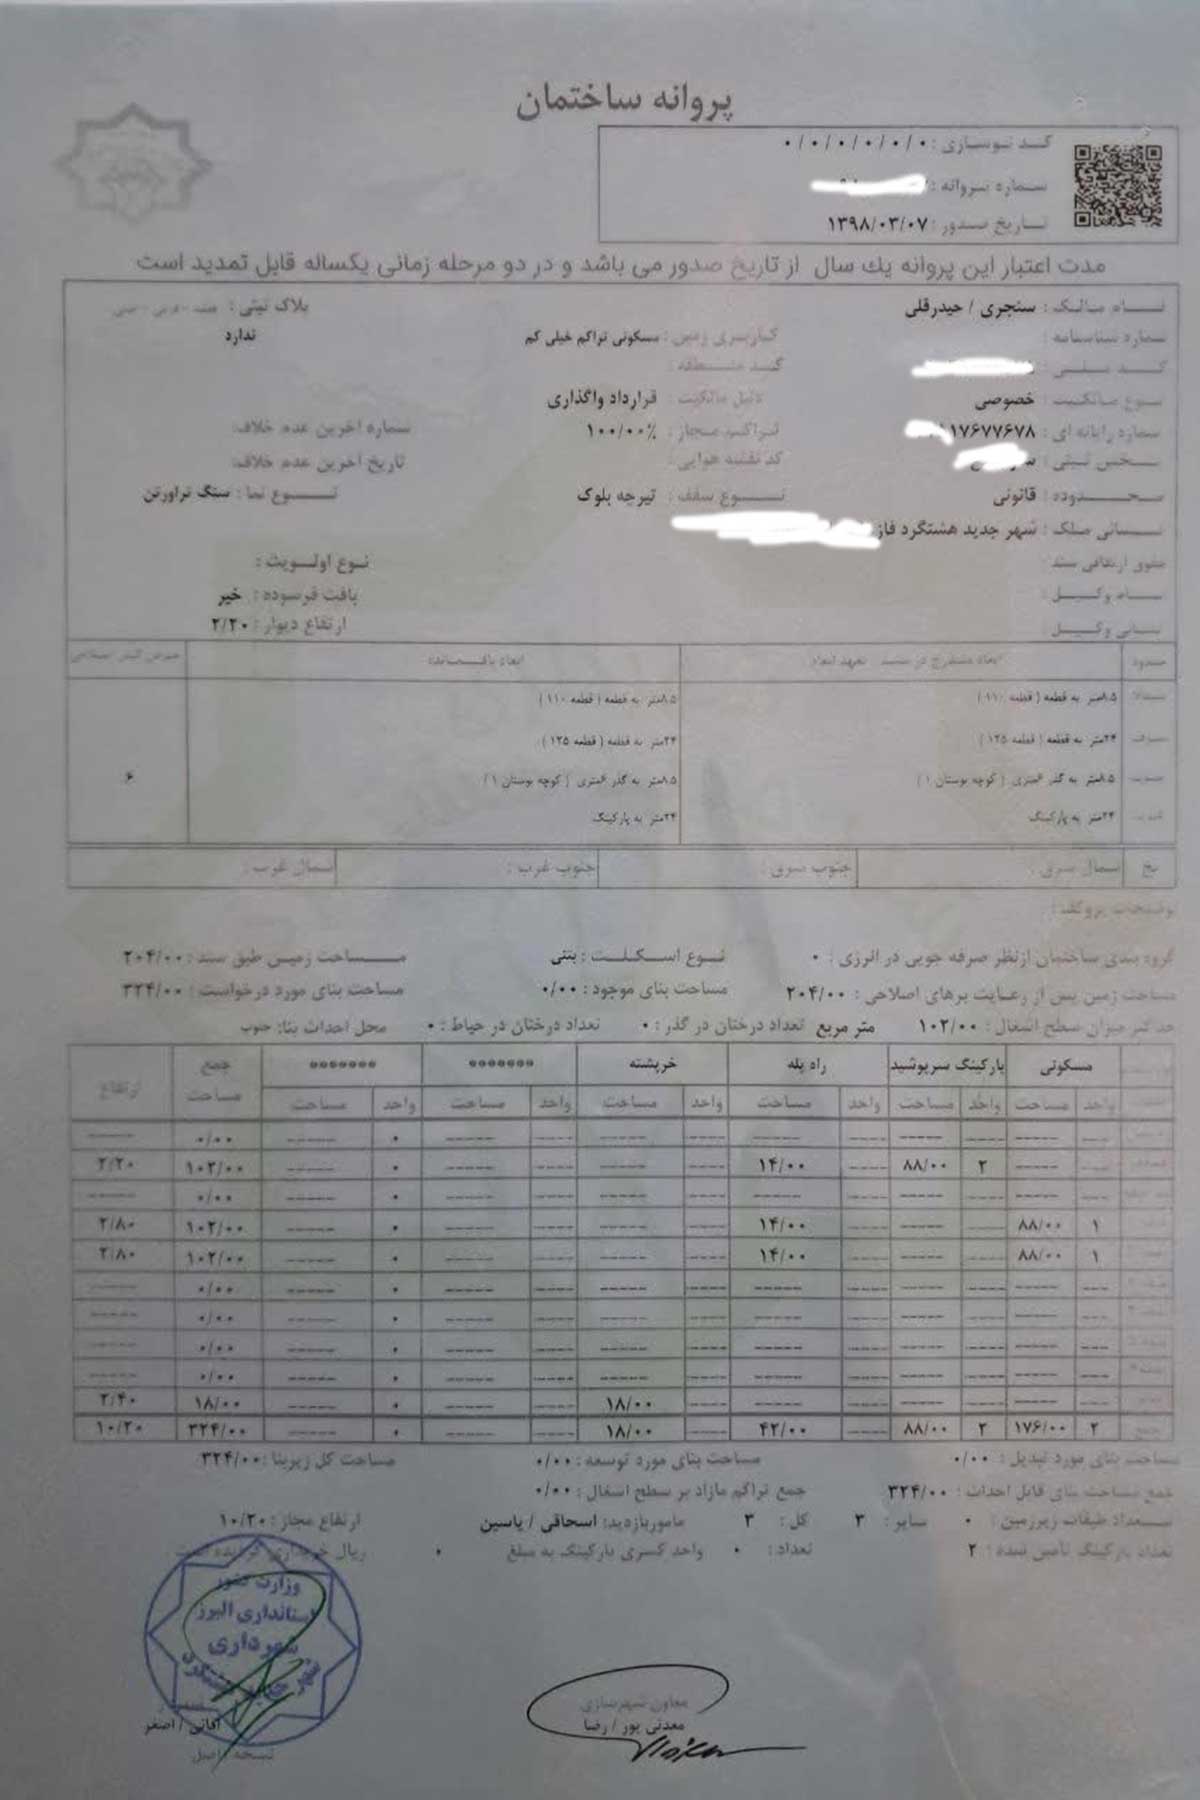 پروانه ساختمان
کد نوسازی : ۰/۰/۰/۰/۰/۰/۰
شماره پروانه :
تاریخ صدور : ۱۳۹۸/۰۳/۰۷
مدت اعتبار این پروانه یك سال از تاریخ صدور می باشد و در دو مرحله زمانی یکساله قابل تمدید است
نام مالک : سنجری / حیدرقلی پلاک ثبتی :
شماره شناسنامه : کاربری زمین : مسکونی تراکم خیلی کم ندارد
کد ملی : کد منطقه :
نوع مالکیت : خصوصی دلیل مالکیت : قرارداد واگذاری
شماره رایانه ای : ۱۷۶۷۷۶۷۸ تراکم مجاز : ۱۰۰/۰۰٪ شماره آخرین عدم خلاف:
بخش ثبتی : کد نقشه هوایی : تاریخ آخرین عدم خلاف:
محدوده : قانونی نوع سقف : تیرچه بلوک نوع نما : سنگ تراورتن
نشانی ملک : شهر جدید هشتگرد فاز
حقوق ارتفاقی سند : نوع اولویت :
نام وکیل : بافت فرسوده : خیر
نشانی وکیل : ارتفاع دیوار : ۲/۲۰
حدود ابعاد مندرج در سند تعهد ابعاد ابعاد باقیمانده عرض گذر اصلاحی
شمالا ۸.۵متر به قطعه ( قطعه ۱۱۰ ) ۸.۵متر به قطعه ( قطعه ۱۱۰ )
شرقا ۲۴متر به قطعه ( قطعه ۱۲۵ ) ۲۴متر به قطعه ( قطعه ۱۲۵ )
جنوبا ۸.۵متر به گذر ۶متری ( کوچه بوستان ۱ ) ۸.۵متر به گذر ۶متری ( کوچه بوستان ۱ ) ۶
غربا ۲۴متر به پارکینگ ۲۴متر به پارکینگ
پخ شمال شرق : جنوب شرق : جنوب غرب : شمال غرب :
توضیحات پروکف:
گروه بندی ساختمان ازنظر صرفه جویی در انرژی : ۰ نوع اسکلت : بتنی مساحت زمین طبق سند : ۲۰۴/۰۰
مساحت زمین پس از رعایت برهای اصلاحی : ۲۰۴/۰۰ مساحت بنای موجود : ۰/۰۰ مساحت بنای مورد درخواست : ۳۲۴/۰۰
حداکثر میزان سطح اشغال : ۱۰۲/۰۰ متر مربع تعداد درختان در گذر : ۰ تعداد درختان در حیاط : ۰ محل احداث بنا: جنوب
مسکونی پارکینگ سرپوشید راه پله خرپشته ******* ******* جمع مساحت ارتفاع
واحد مساحت واحد مساحت واحد مساحت واحد مساحت واحد مساحت واحد مساحت
---- ----- ---- ----- ---- ----- ---- ----- ---- ----- ۰ ----- ۰/۰۰ -----
---- ----- ۲ ۸۸/۰۰ ---- ۱۴/۰۰ ---- ----- ---- ----- ۰ ----- ۱۰۲/۰۰ ۲/۲۰
---- ----- ---- ----- ---- ----- ---- ----- ---- ----- ۰ ----- ۰/۰۰ -----
۱ ۸۸/۰۰ ---- ----- ---- ۱۴/۰۰ ---- ----- ---- ----- ۰ ----- ۱۰۲/۰۰ ۲/۸۰
۱ ۸۸/۰۰ ---- ----- ---- ۱۴/۰۰ ---- ----- ---- ----- ۰ ----- ۱۰۲/۰۰ ۲/۸۰
---- ----- ---- ----- ---- ----- ---- ----- ---- ----- ۰ ----- ۰/۰۰ -----
---- ----- ---- ----- ---- ----- ---- ----- ---- ----- ۰ ----- ۰/۰۰ -----
---- ----- ---- ----- ---- ----- ---- ----- ---- ----- ۰ ----- ۰/۰۰ -----
---- ----- ---- ----- ---- ----- ---- ----- ---- ----- ۰ ----- ۰/۰۰ -----
---- ----- ---- ----- ---- ----- ---- ۱۸/۰۰ ---- ----- ۰ ----- ۱۸/۰۰ ۲/۴۰
جمع ۲ ۱۷۶/۰۰ ۲ ۸۸/۰۰ ---- ۴۲/۰۰ ---- ۱۸/۰۰ ---- ----- ۰ ----- ۳۲۴/۰۰ ۱۰/۲۰
مساحت بنای مورد تبدیل : ۰/۰۰ مساحت بنای مورد توسعه : ۰/۰۰ مساحت کل زیربنا : ۳۲۴/۰۰
جمع مساحت بنای قابل احداث : ۳۲۴/۰۰ جمع تراکم مازاد بر سطح اشغال : ۰/۰۰
تعداد طبقات زیرزمین : ۰ سایر : ۳ کل : ۳ مامور بازدید: اسحاقی / یاسین ارتفاع مجاز : ۱۰/۲۰
تعداد پارکینگ تامین شده : ۲ تعداد : ۰ واحد کسری پارکینگ به مبلغ ۰ ریال خریداری گردیده است
وزارت کشور
استانداری البرز
شهرداری
شهر جدید هشتگرد
معاون شهرسازی
معدنی پور / رضا
شهردار
آقائی / اصغر
نسخه اصل